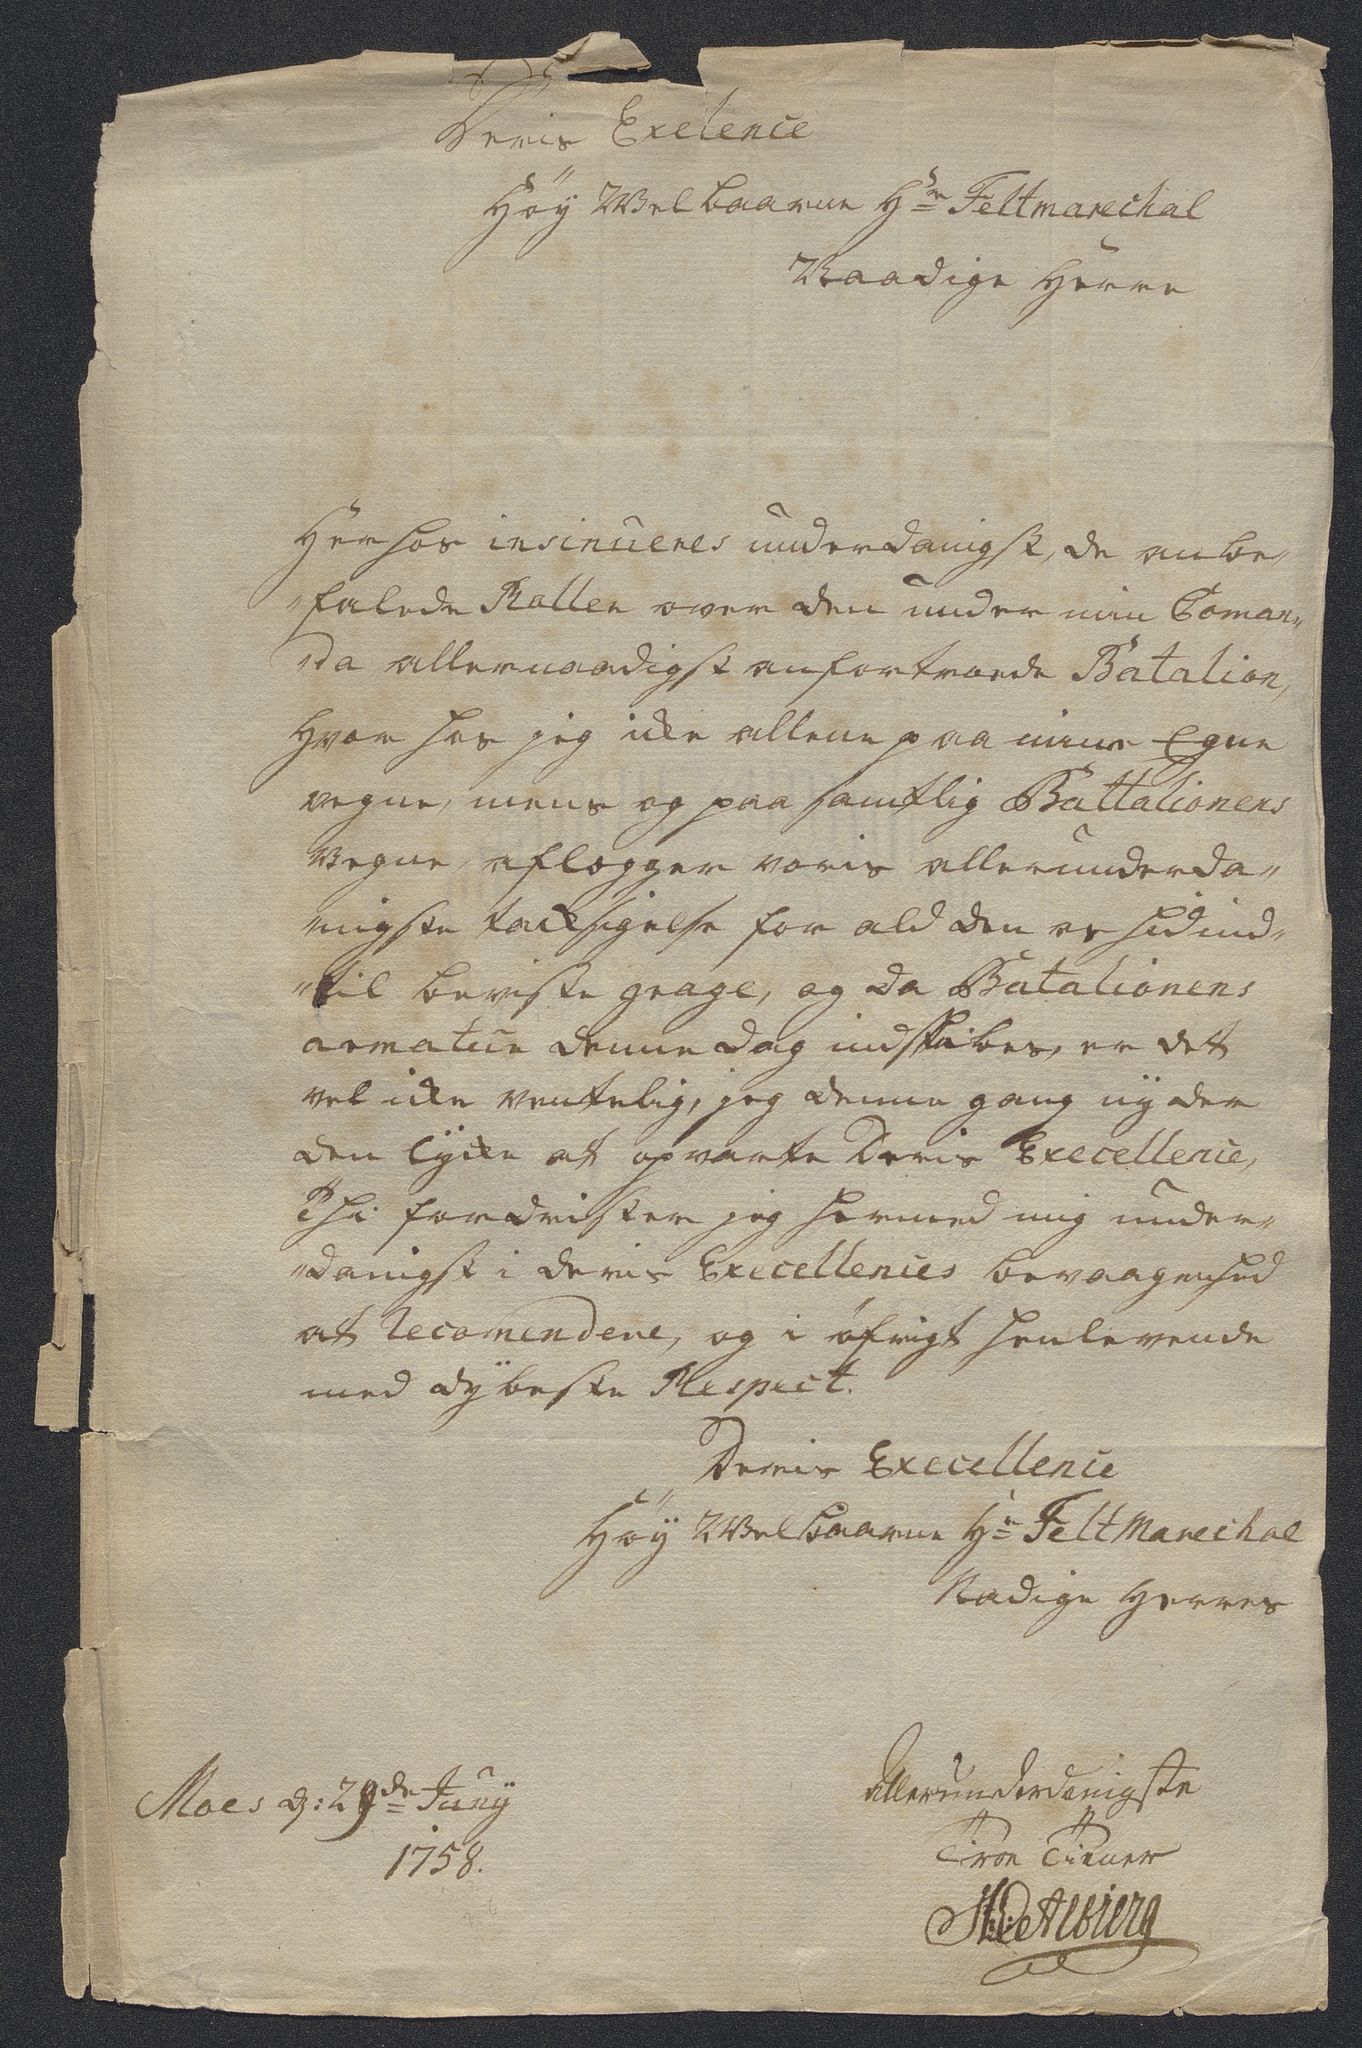 Deris Exelence
Höÿ Welbaarne Hr= Feltmarechal
Naadige Herre
Herhos insinueres underdanigst, de anbe„
„falede Rolle over den under min Coman„
„do allernaadigst anfortroede Batalion,
Hvor hos jeg icke allene paa mine Egne
vegne, mens og paa samtlig Battalionens
Vegne, aflegger voris allerunderda„
„nigste tacksigelse for ald den os hid ind„
„til beviste grage, og da Batalionens
armatur denne dag indskibes, er det
vel icke ventelig, jeg denne gang nyder
den Lÿcke at opvarte Deris Execellence,
Thi fordrister jeg hermed mig under„
„danigst i deris Execellences bevaagenhed
at Recomendere, og i öfrigt henlevende
med dÿbeste Respect.
Deris Execellence
Höÿ Welbaarne Hr= Felt Marechal
Nadige Herres
Moes d: 29de= Junÿ
1758.
allerunderdanigste
Troe Tienner